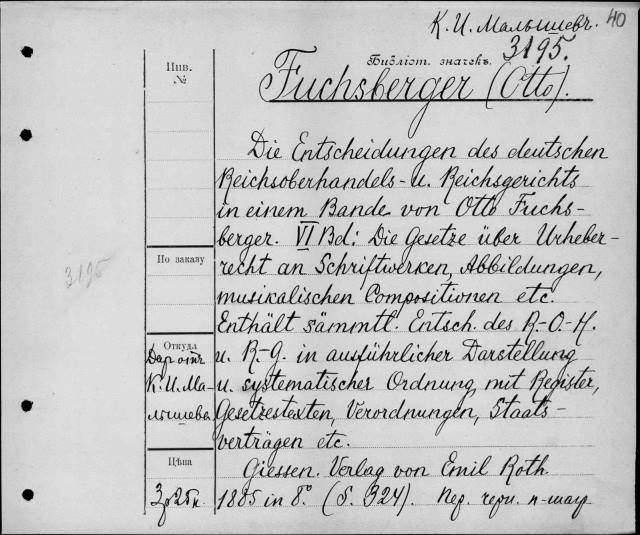 К. И. Малышевъ. 40
3195.
Инв.
№
Библіот. значекъ.
Fuchsberger (Otto).
Die Entscheidungen des deutschen
Reichsoberhandels- u. Reichsgerichts
in einem Bande von Otto Fuchs-
berger. VI Bd: Die Gesetze über Urheber-
По заказу
recht an Schriftwerken, Abbildungen,
3195
musikalischen Compositionen etc.
Enthält sämmtl. Entsch. des R.-O.-H.
Откуда
Даръ отъ
К. И. Ма-
лышева
u. R.-G. in ausführlicher Darstellung
u. systematischer Ordnung, mit Register,
Gesetzestexten, Verordnungen, Staats-
verträgen etc.
Цѣна
3 р 25 к.
Giessen. Verlag von Emil Roth.
1885 in 8º. (S. 324). Пер.